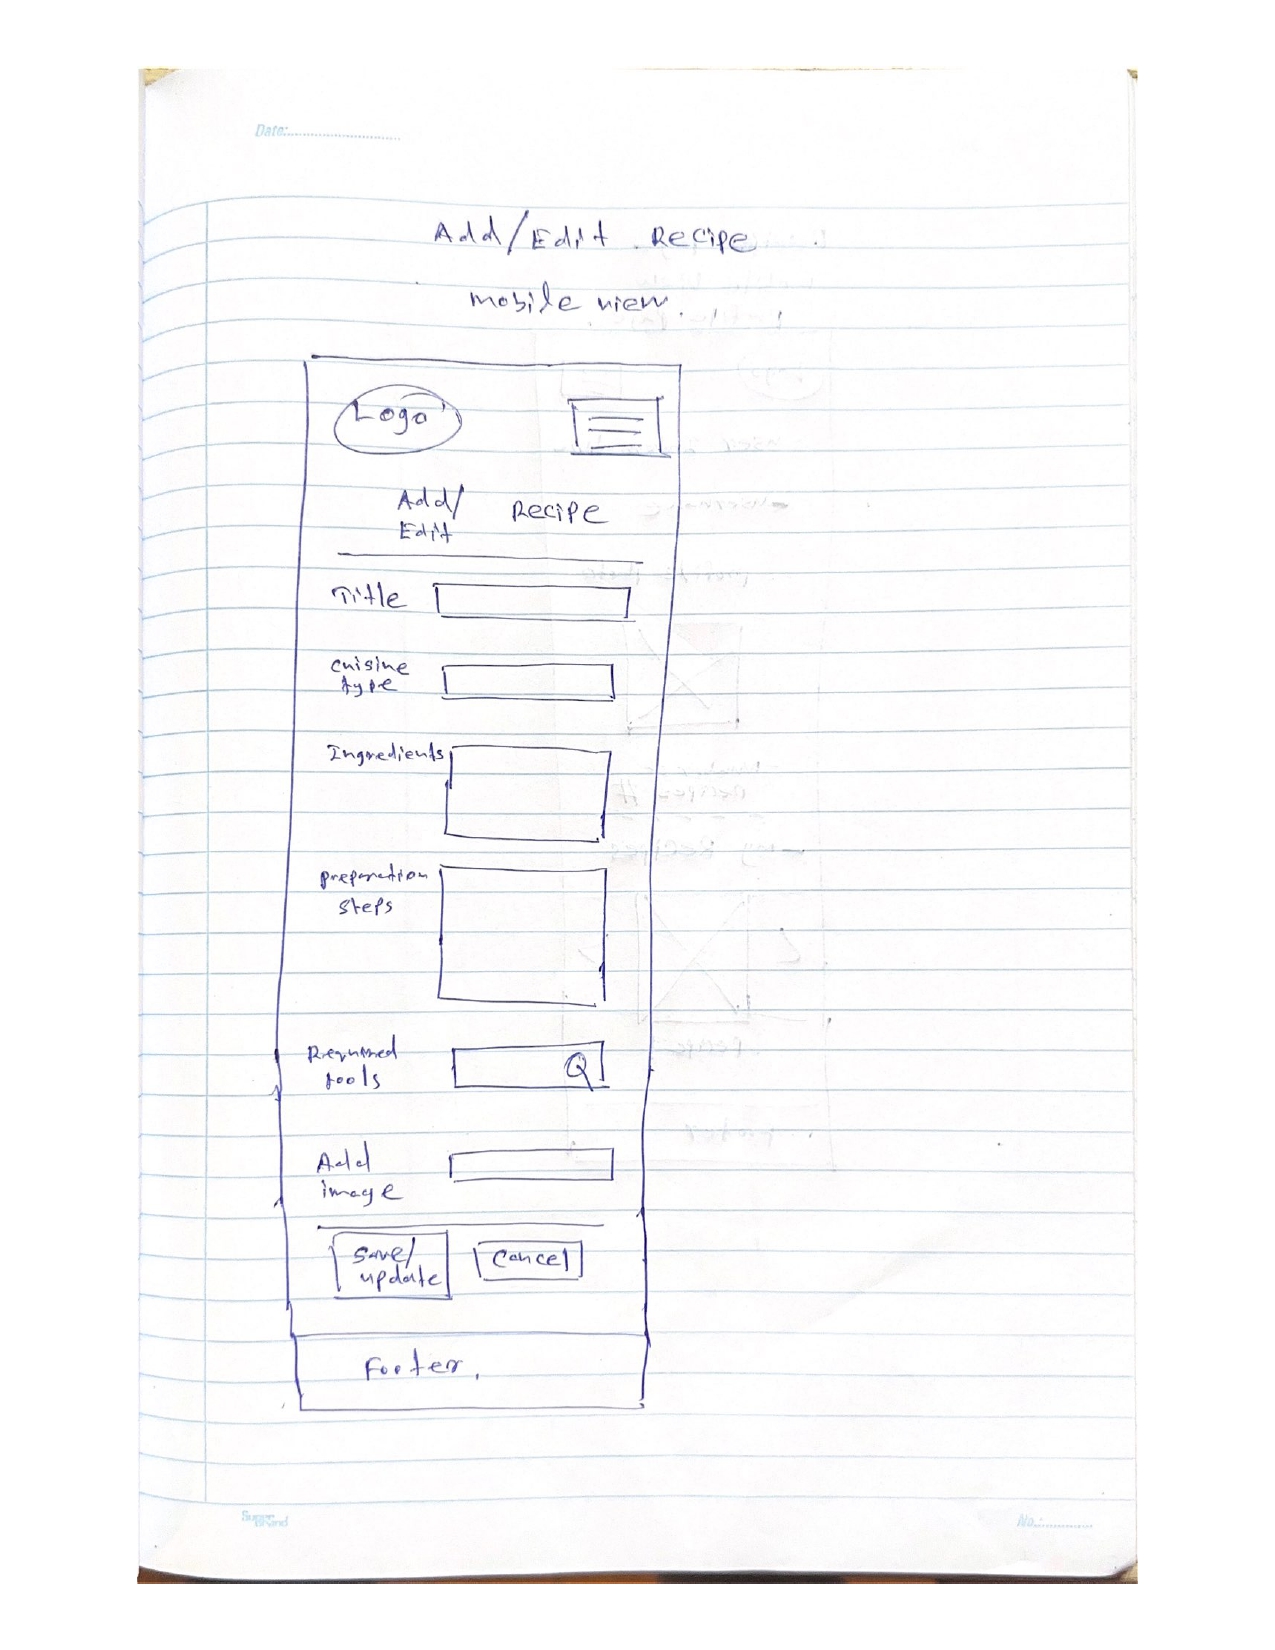 Date:
Add/Edit Recipe
mobile view.
Logo
Add/ Recipe
Edit
Title
cuisine
type
Ingredients
preparation
steps
Required
tools
Q
Add
image
Save/ Cancel
update
Footer.
No.: